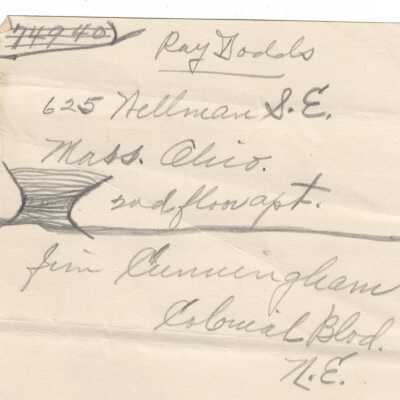 74940
Ray Dodds
625 Wellman S.E.
Mass. Ohio.
2nd floor apt.
Jim Cunningham
Colonial Blvd.
N.E.